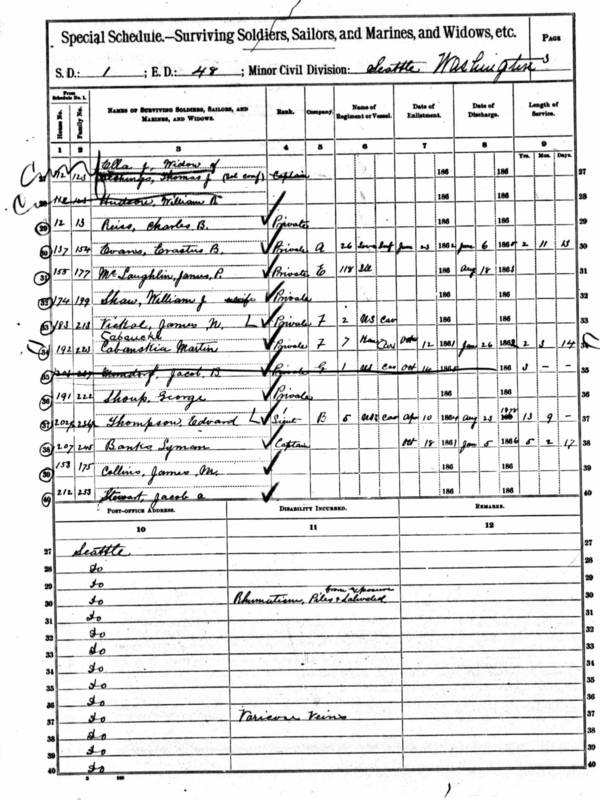 Special Schedule.—Surviving Soldiers, Sailors, and Marines, and Widows, etc.
PAGE 3
S. D.: 1 ; E. D.: 48 ; Minor Civil Division: Seattle Washington
From Schedule No. 1.
House No. Family No. NAMES OF SURVIVING SOLDIERS, SAILORS, AND MARINES, AND WIDOWS. Rank. Company. Name of Regiment or Vessel. Date of Enlistment. Date of Discharge. Length of Service.
Yrs. Mos. Days.
1 2 3 4 5 6 7 8 9
Ella J, Widow of
123 Thomas J Captain 186 186 27
Hudson, William 186 186 28
29 12 13 Reiss, Charles B. Private 186 186 29
30 137 154 Evans, Erastus B. Private A 26 Iowa Inf June 23 1862 June 6 1865 2 11 13 30
31 155 177 McLaughlin, James P. Private E 118 Ill 186 Aug 18 186 31
32 174 199 Shaw, William J Private 186 186 32
33 183 213 James N. L Private F 2 US Cav 186 186 33
34 192 223 Cabanskia Martin Private F 7 Kan Cav Oct 12 1861 Jan 26 186 2 3 14 34
35 Mundorf, Jacob B Private G 1 US Cav Oct 14 186 186 3 – – 35
36 191 222 Shoup, George Private 186 186 36
37 Thompson, Edward L Sergt B 5 US Cav Apr 10 1864 Aug 23 1878 13 9 – 37
38 207 245 Banks Lyman Captain Oct 18 1861 Jan 5 1866 5 2 17 38
39 153 175 Collins, James M. 186 186 39
40 212 253 Stewart, Jacob A 186 186 40
POST-OFFICE ADDRESS. DISABILITY INCURRED. REMARKS.
10 11 12
27 Seattle 27
28 Do 28
29 Do 29
from exposure
30 Do Rhumatism, Piles & 30
31 Do 31
32 Do 32
33 Do 33
34 Do 34
35 Do 35
36 Do 36
37 Do Varicose Veins 37
38 Do 38
39 Do 39
40 Do 40